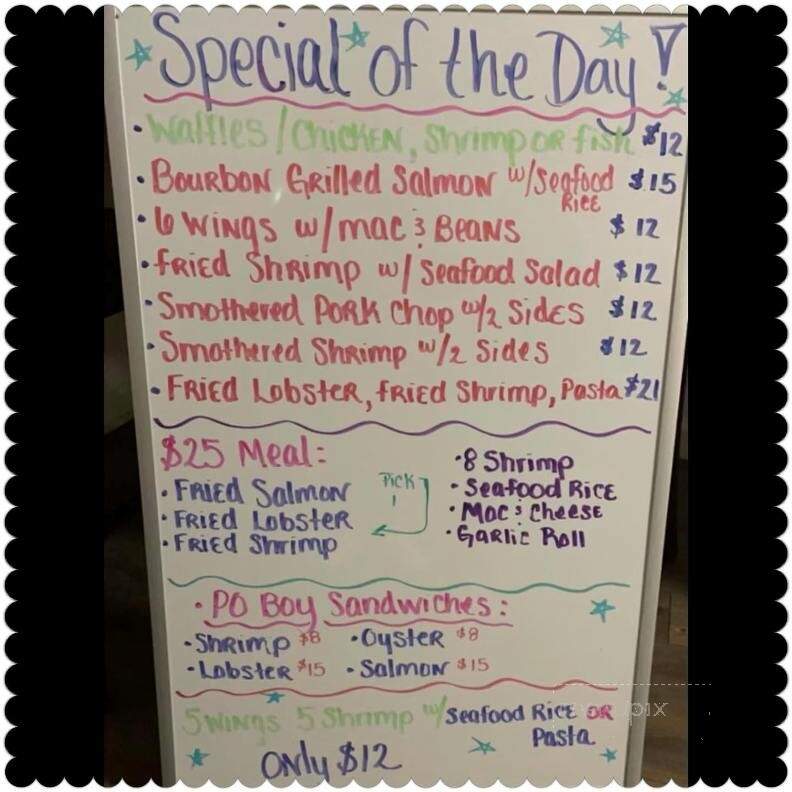 Special of the Day!
• Waffles / Chicken, Shrimp OR fish $12
• Bourbon Grilled Salmon w/Seafood Rice $15
• 6 Wings w/mac & Beans $12
• Fried Shrimp w/ Seafood Salad $12
• Smothered Pork Chop w/2 Sides $12
• Smothered Shrimp w/2 Sides $12
• Fried Lobster, fried Shrimp, Pasta $21
$25 Meal:
• Fried Salmon
• Fried Lobster
• Fried Shrimp
Pick 1
• 8 Shrimp
• Seafood Rice
• Mac & Cheese
• Garlic Roll
• PO Boy Sandwiches:
• Shrimp $8 • Oyster $8
• Lobster $15 • Salmon $15
5 Wings 5 Shrimp w/ Seafood Rice OR Pasta
Only $12